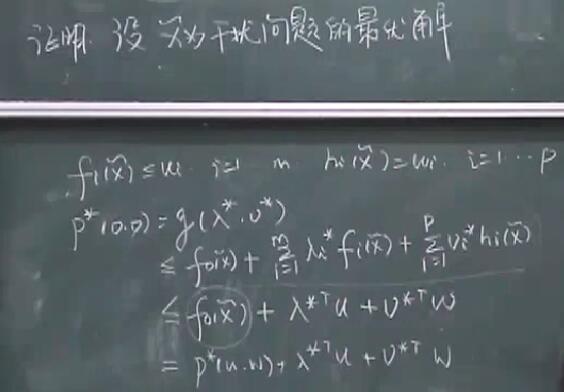 证明. 设 x̃为干扰问题的最优解
fi(x̃) ≤ ui. i=1 m hi(x̃)=wi. i=1···p
p*(0,0) = g(λ*.υ*)
≤ f0(x̃) + ∑_{i=1}^{m} λi* fi(x̃) + ∑_{i=1}^{p} υi* hi(x̃)
≤ f0(x̃) + λ*ᵀu + υ*ᵀw
= p*(u.w) + λ*ᵀu + υ*ᵀ w